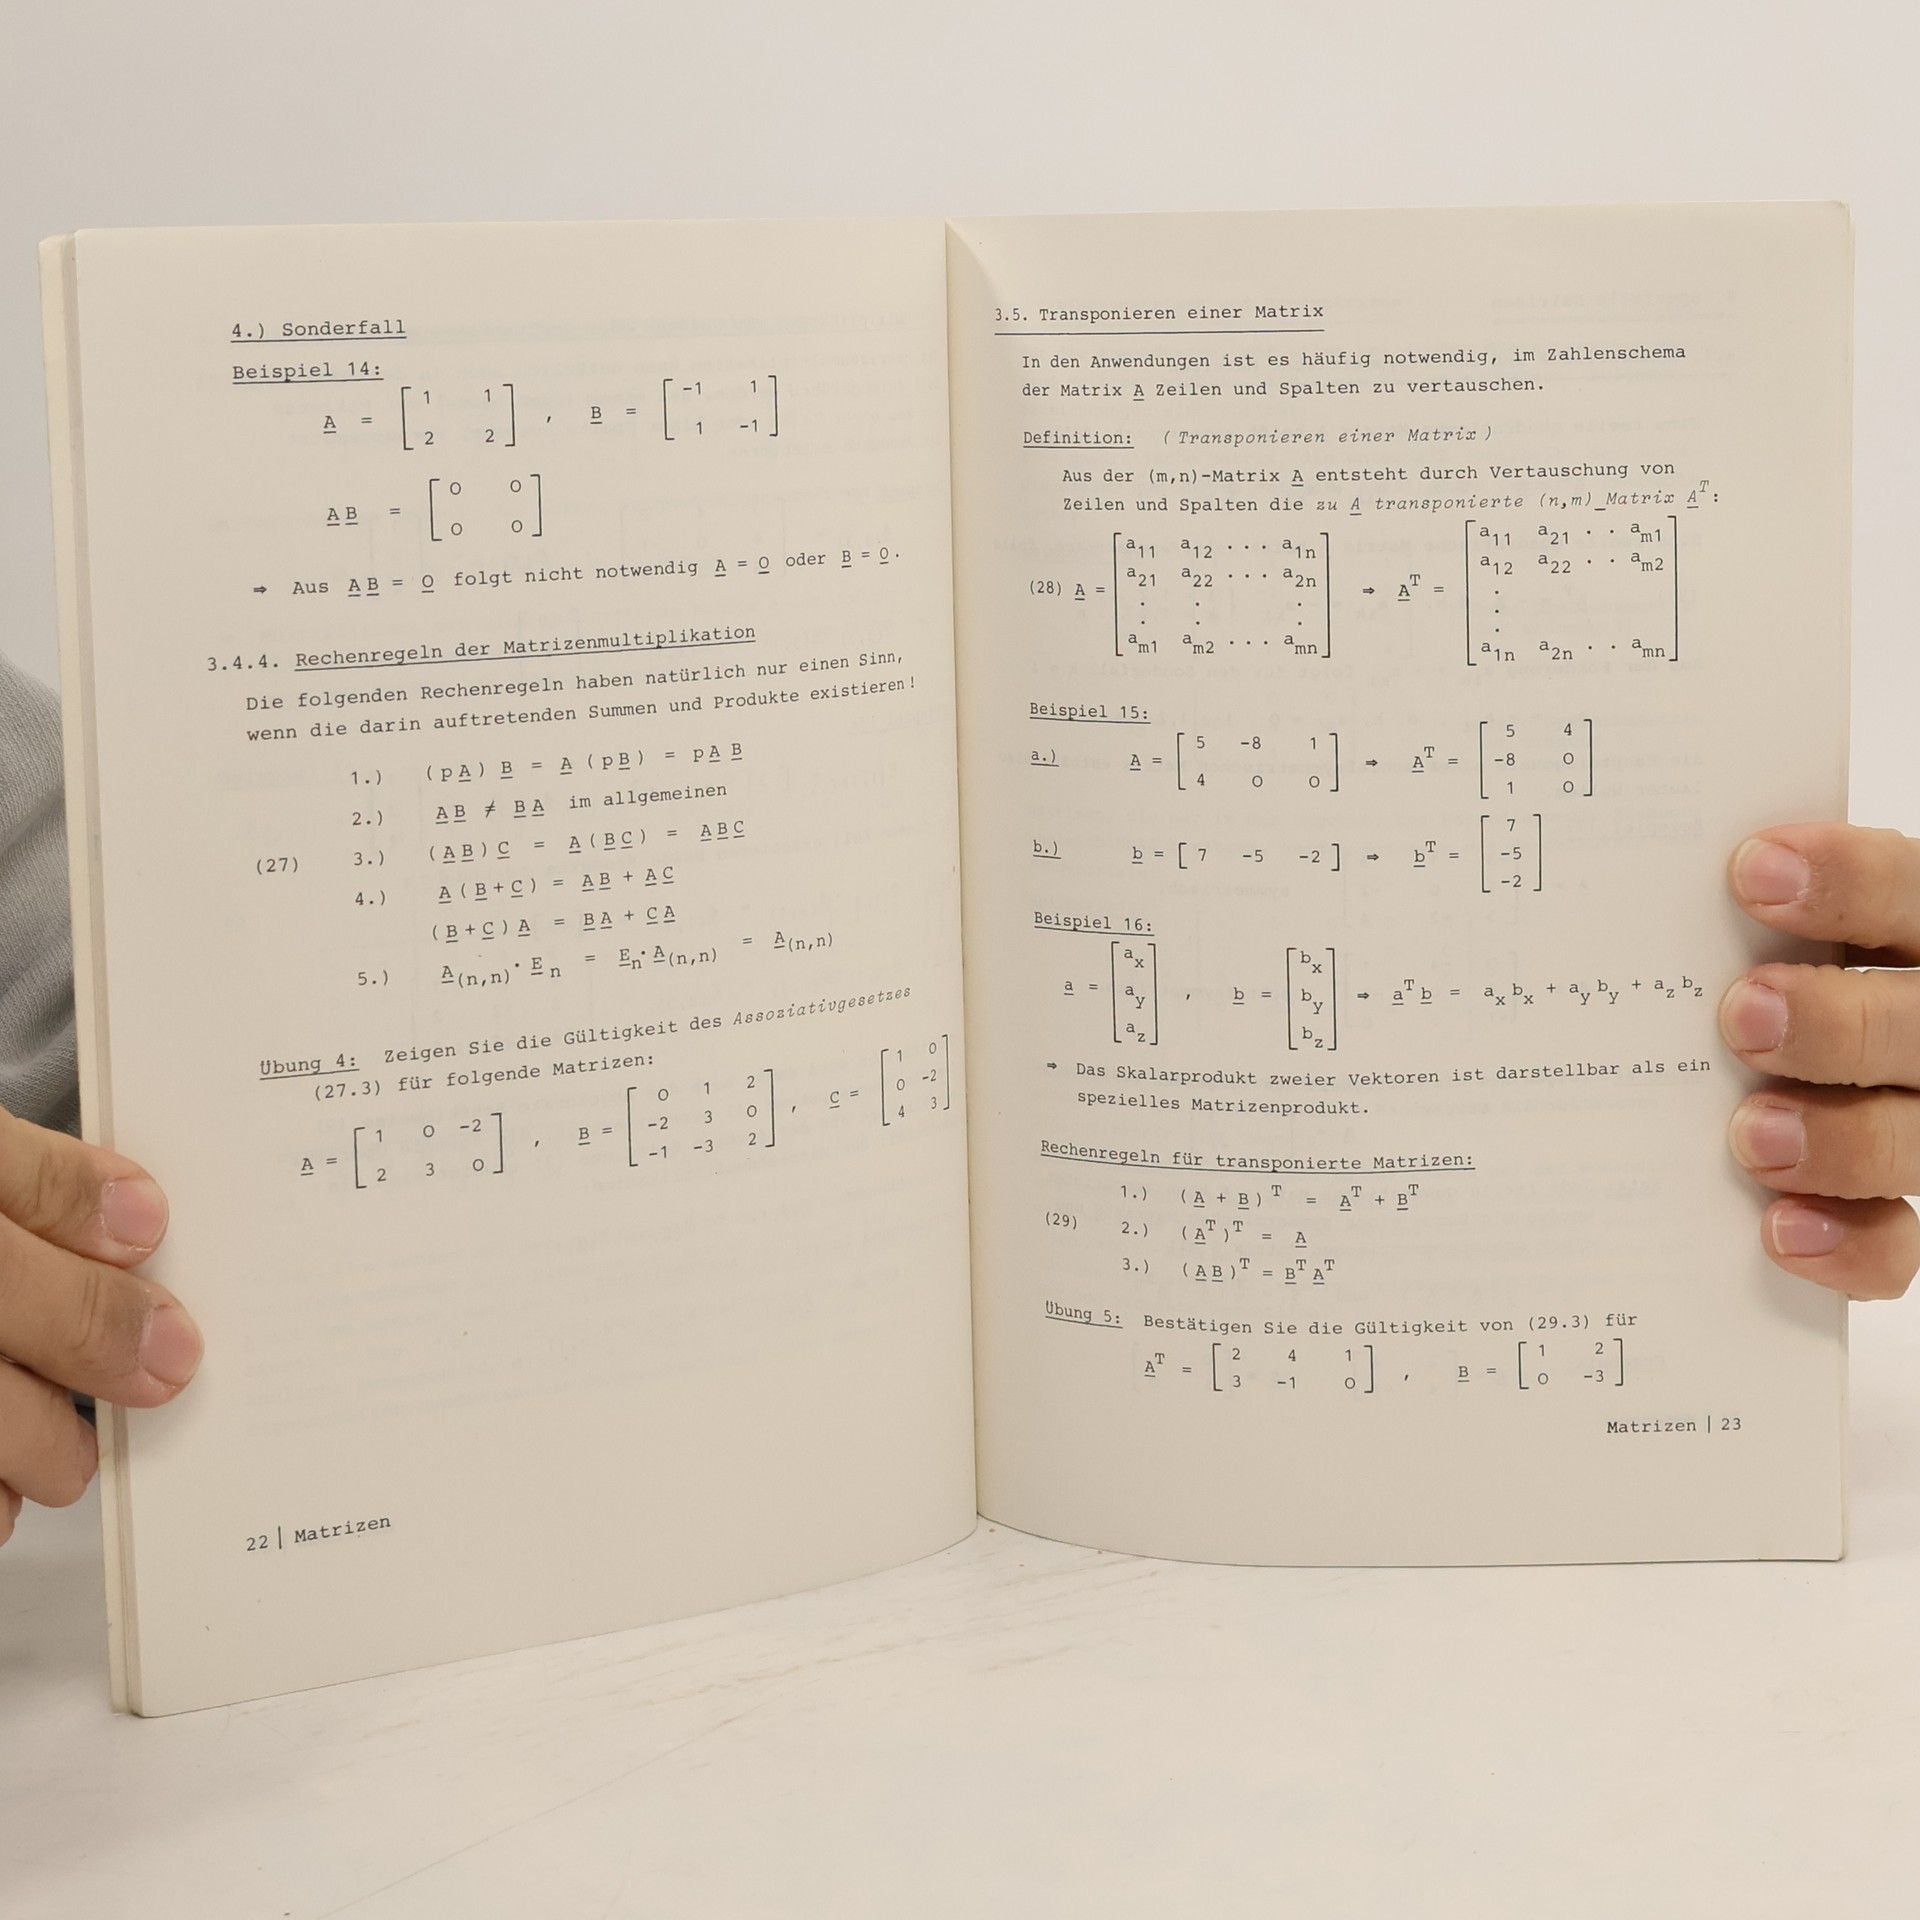 4.) Sonderfall
Beispiel 14:
A = [ 1 1 ; 2 2 ] , B = [ -1 1 ; 1 -1 ]
A B = [ 0 0 ; 0 0 ]
⇒ Aus A B = 0 folgt nicht notwendig A = 0 oder B = 0.
3.4.4. Rechenregeln der Matrizenmultiplikation
Die folgenden Rechenregeln haben natürlich nur einen Sinn,
wenn die darin auftretenden Summen und Produkte existieren!
1.) (pA) B = A (pB) = pA B
2.) AB ≠ BA im allgemeinen
(27) 3.) (AB)C = A(BC) = ABC
4.) A(B+C) = AB + AC
(B+C)A = BA + CA
5.) A(n,n)·En = En·A(n,n) = A(n,n)
Übung 4: Zeigen Sie die Gültigkeit des Assoziativgesetzes
(27.3) für folgende Matrizen:
A = [ 1 0 -2 ; 2 3 0 ] , B = [ 0 1 2 ; -2 3 0 ; -1 -3 2 ] , C = [ 1 0 ; 0 -2 ; 4 3 ]
22 | Matrizen
3.5. Transponieren einer Matrix
In den Anwendungen ist es häufig notwendig, im Zahlenschema
der Matrix A Zeilen und Spalten zu vertauschen.
Definition: (Transponieren einer Matrix)
Aus der (m,n)-Matrix A entsteht durch Vertauschung von
Zeilen und Spalten die zu A transponierte (n,m)_Matrix A^T:
(28) A = [ a11 a12 · · · a1n ; a21 a22 · · · a2n ; · · · ; · · · ; am1 am2 · · · amn ] ⇒ A^T = [ a11 a21 · · am1 ; a12 a22 · · am2 ; · ; · ; · ; a1n a2n · · amn ]
Beispiel 15:
a.) A = [ 5 -8 1 ; 4 0 0 ] ⇒ A^T = [ 5 4 ; -8 0 ; 1 0 ]
b.) b = [ 7 -5 -2 ] ⇒ b^T = [ 7 ; -5 ; -2 ]
Beispiel 16:
a = [ ax ; ay ; az ] , b = [ bx ; by ; bz ] ⇒ a^T b = ax bx + ay by + az bz
⇒ Das Skalarprodukt zweier Vektoren ist darstellbar als ein
spezielles Matrizenprodukt.
Rechenregeln für transponierte Matrizen:
1.) (A + B)^T = A^T + B^T
(29) 2.) (A^T)^T = A
3.) (AB)^T = B^T A^T
Übung 5: Bestätigen Sie die Gültigkeit von (29.3) für
A^T = [ 2 4 1 ; 3 -1 0 ] , B = [ 1 2 ; 0 -3 ]
Matrizen | 23